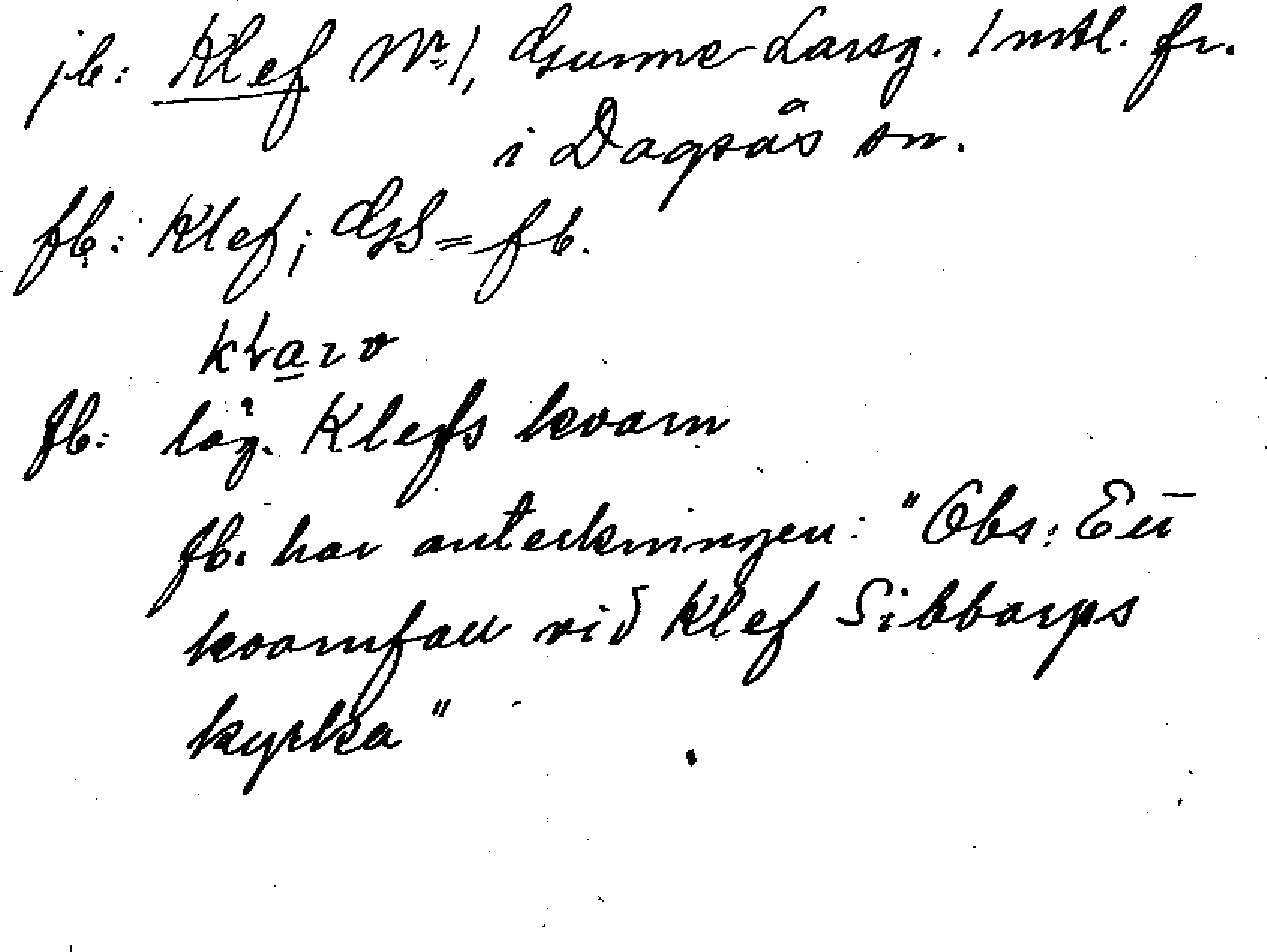 jb: Klef Nr 1, Gunne Larsg. 1 mtl. fr.
i Dagsås sn.
fb: Klef; GS = fb.
fb: läg. Klefs kvarn
fb. har anteckningen: "Obs: Ett
kvarnfall vid Klef Sibbarps
kyrka"